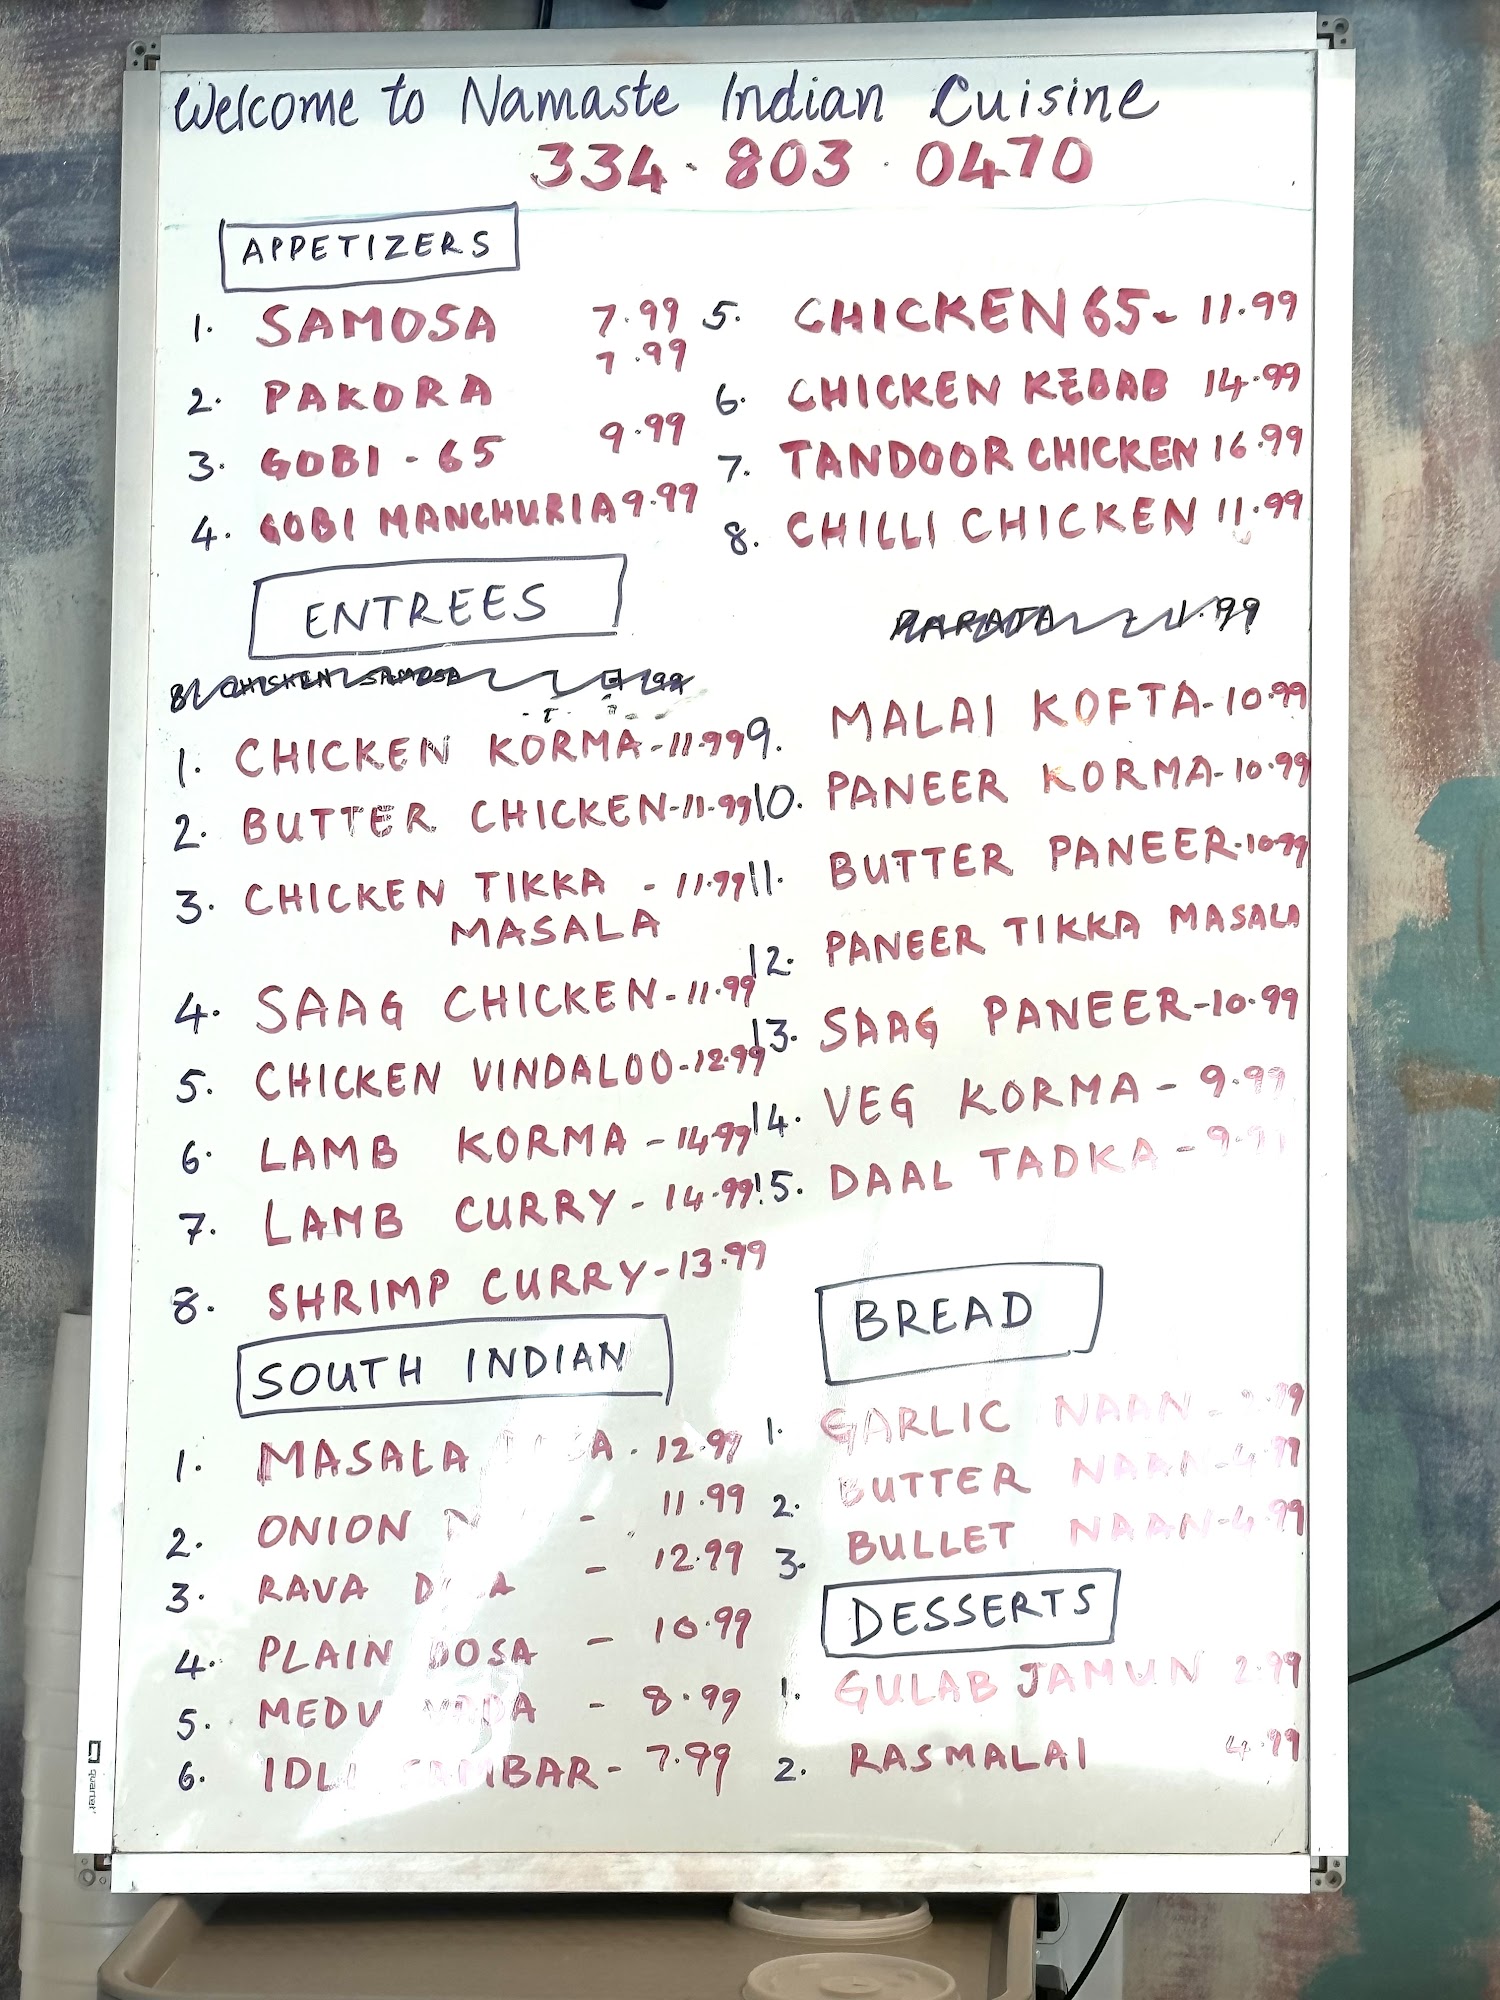 Welcome to Namaste Indian Cuisine
334 · 803 · 0470
APPETIZERS
1. SAMOSA 7.99
2. PAKORA 7.99
3. GOBI - 65 9.99
4. GOBI MANCHURIA 9.99
5. CHICKEN 65 - 11.99
6. CHICKEN KEBAB 14.99
7. TANDOOR CHICKEN 16.99
8. CHILLI CHICKEN 11.99
ENTREES
8. CHICKEN SAMOSA
1. CHICKEN KORMA - 11.99
2. BUTTER CHICKEN - 11.99
3. CHICKEN TIKKA - 11.99
MASALA
4. SAAG CHICKEN - 11.99
5. CHICKEN VINDALOO - 12.99
6. LAMB KORMA - 14.99
7. LAMB CURRY - 14.99
8. SHRIMP CURRY - 13.99
PARATA - 1.99
9. MALAI KOFTA - 10.99
10. PANEER KORMA - 10.99
11. BUTTER PANEER - 10.99
12. PANEER TIKKA MASALA
13. SAAG PANEER - 10.99
14. VEG KORMA - 9.99
15. DAAL TADKA - 9.99
SOUTH INDIAN
1. MASALA - 12.99
2. ONION - 11.99
3. RAVA DOSA - 12.99
4. PLAIN DOSA - 10.99
5. MEDU VADA - 8.99
6. IDLI SAMBAR - 7.99
BREAD
1. GARLIC NAAN -
2. BUTTER NAAN - 4.99
3. BULLET NAAN - 4.99
DESSERTS
1. GULAB JAMUN 2.99
2. RASMALAI 4.99
quartet